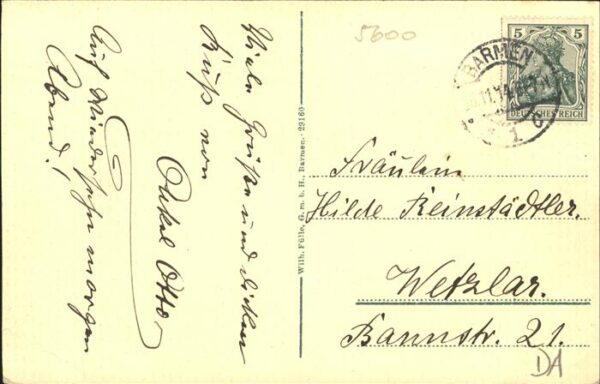 Viele Grüße und dicken
Kuß von
Onkel Otto
Auf Wiedersehn morgen
Abend!
Wilh. Fülle, G. m. b. H., Barmen. 29160
5600
5 5
DEUTSCHES REICH
BARMEN
1
Fräulein
Hilde Reinstädtler.
Wetzlar.
Bannstr. 21.
DA